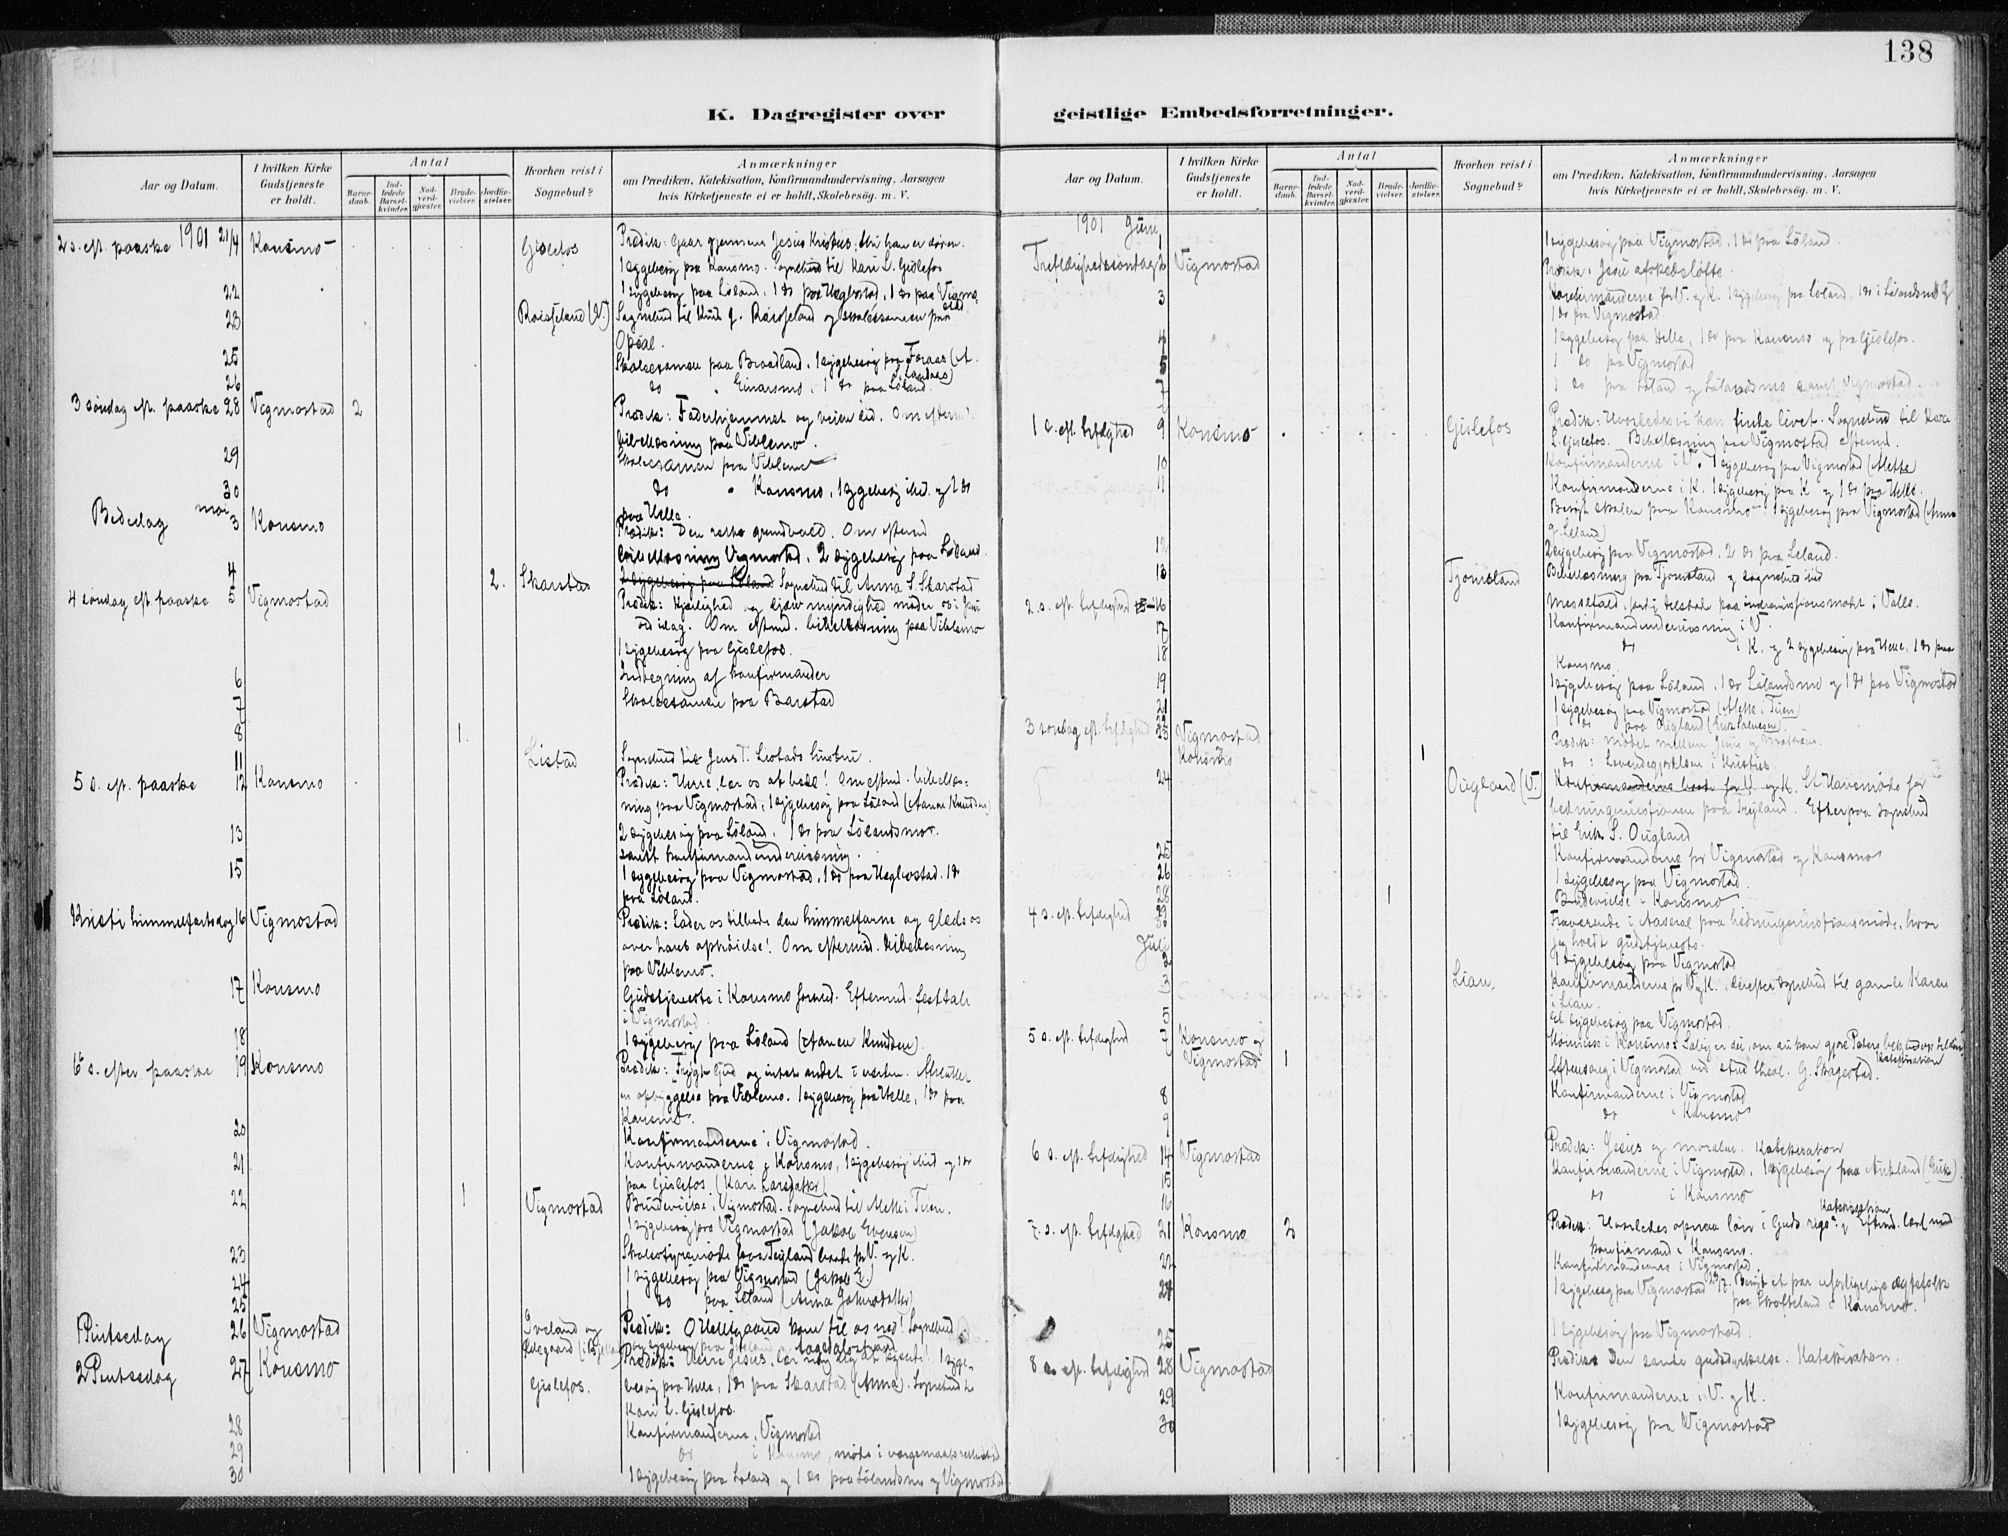 138
K. Dagregister over
geistlige Embedsforretninger.
Aar og Datum.
I hvilken Kirke Gudstjeneste er holdt.
Antal
Barnedaab.
Indledede Barselkvinder.
Nadverdgjester.
Brudevielser.
Jordfæstelser.
Hvorhen reist i Sognebud?
Anmærkninger
om Prædiken, Katekisation, Konfirmandundervisning, Aarsagen
hvis Kirketjeneste ei er holdt, Skolebesøg. m. V.
2 s. eft. paaske 1901 21/4 Konsmo Gislefos Prædik: Gaar gjennem Jesus Kristus; thi han er døren.
1 sygebesøg paa Konsmo. Sognebud til Kari L. Gislefos
22 1 sygebesøg paa Løland, 1 do paa Hægbostad, 1 do paa Vigmostad.
23 Roisseland (V.) Sognebud til Knud J. Roisseland og skoleexamen paa
Opsal.
25 Skoleexamen paa Braadland, 1 sygebesøg paa Foraas
26 do " Einarsmo, 1 do paa Løland.
3 søndag eft. paaske 28 Vigmostad 2 Prædik: Faderhjemmet og veien did. Om efterm.
bibellæsning paa Viblemo.
29 Skoleexamen paa Viblemo
30 do " Konsmo, 1 sygebesøg ibid. og 1 do
paa Helle.
Bededag mai 3 Konsmo Prædik: Den rette grundvold. Om efterm.
bibellæsning Vigmostad, 2 sygebesøg paa Løland.
4 2. Skarstad 1 sygebesøg paa Løland Sognebud til Anna S Skarstad
4 søndag eft. paaske 5 Vigmostad Prædik: Kjærlighed og myndighed møder os i
ord idag. Om efterm. bibellæsning paa Viblemo
1 sygebesøg paa Gislefos.
6 Indtegning af konfirmander
7 Skoleexamen paa Barstad
8 1.
11 Listad Sognebud til Jens T. Listads hustru.
5 s. eft. paaske 12 Konsmo Prædik: Herre, lær os at bede! Om efterm. bibellæsning
paa Vigmostad, 1 sygebesøg paa Løland (Aanen Knudsen)
13 2 sygebesøg paa Løland, 1 do paa Lølandsmo.
samt konfirmandundervisning.
15 1 sygebesøg paa Vigmostad, 1 do paa Hægbostad. 1 do
paa Løland.
Kristi himmelfartsdag 16 Vigmostad Prædik: Lader os tilbede den himmelfarne og glæde os
over hans ophøielse! Om efterm. bibellæsning
paa Viblemo.
17 Konsmo Gudstjeneste i Konsmo formd. Eftermd. festtale
i Vigmostad.
18 1 sygebesøg paa Løland (Aanen Knudsen).
6 s. efter paaske 19 Konsmo Prædik: Frygt Gud og intet andet i verden.
opbyggelse paa Viblemo. 1 sygebesøg paa Helle, 1 do paa
Konsmo.
20 Konfirmanderne i Vigmostad.
21 Konfirmanderne i Konsmo, 1 sygebesøg ibid og 1 do
paa Gislefos (Kari Larsdatter)
22 1 Vigmostad Brudevielse i Vigmostad. Sognebud til Mette i Tuen.
1 sygebesøg paa Vigmostad (Jakob Evensen)
23 Skolestyremøde paa Fegland baade for V. og K.
24 1 sygebesøg paa Vigmostad (Jakob E.)
25 1 do paa Løland (Anna Jakobsdatter)
1 Pintsedag 26 Vigmostad Iveland og Prædik: O Helligaand kom til os ned! Sognebud
2 Pintsedag 27 Konsmo Gislefos. Prædik: Herre Jesus, lær mig dig at kjende! 1 sygebesøg
paa Helle, 1 do paa Skarstad (Anna). Sognebud til
Kari L. Gislefos.
28 Konfirmanderne i Vigmostad
29 do i Konsmo, møde i vergemaalsraadet
30 1 sygebesøg paa Løland og 1 do paa Lølandsmo og Vigmostad
Aar og Datum.
I hvilken Kirke Gudstjeneste er holdt.
Antal
Barnedaab.
Indledede Barselkvinder.
Nadverdgjester.
Brudevielser.
Jordfæstelser.
Hvorhen reist i Sognebud?
Anmærkninger
om Prædiken, Katekisation, Konfirmandundervisning, Aarsagen
hvis Kirketjeneste ei er holdt, Skolebesög. m. V.
1901 Juni
1 1 sygebesøg paa Vigmostad, 1 do paa Løland.
Trefoldighedssøndag 2 Vigmostad Prædik: Jesu afskedsløfte.
3 Konfirmanderne for V. og K. 1 sygebesøg paa Løland, 1 do i Lølandsmo og
1 do paa Vigmostad.
4 1 sygebesøg paa Helle, 1 do paa Konsmo og paa Gislefos.
5 1 do paa Vigmostad
7 1 do paa Løland og Lølandsmo samt Vigmostad.
1 s. eft. trefoldighed 9 Konsmo Gislefos Prædik: Hvorledes vi kan finde livet. Sognebud til Kari
L. Gislefos. Bibellæsning paa Vigmostad efterm.
10 Konfirmanderne i V. 1 sygebesøg paa Vigmostad (Mette
11 Konfirmanderne i K. 1 sygebesøg paa K og 1 do paa Helle.
Besøgt skolen paa Konsmo 1 sygebesøg paa Vigmostad (Anna
J. Løland)
12 2 sygebesøg paa Vigmostad, 2 do paa Løland.
13 Tjomsland Bibellæsning paa Tjomsland og sognebud ibid
2 s. eft. trefoldighed 16 Messefald, fordi tilstede paa indremissionsmøtet i Valle.
17 Konfirmandundervisning i V.
18 do i K. og 2 sygebesøg paa Helle, 1 do paa
Konsmo.
19 1 sygebesøg paa Løland, 1 do Lølandsmo og 1 do paa Vigmostad
21 1 sygebesøg paa Vigmostad (Mette i Tuen)
3 søndag eft. trefoldighed 23 Vigmostad Prædik: mødet mellem Jesus og
Konsmo 1 do : Levendegjørelsen i Kristus.
24 Ougland (V.) Konfirmanderne baade for V. og K. Et Havemøde for
hedningemissionen paa Fegland. Efterpaa sognebud
til Erik S. Ougland
25 Konfirmanderne for Vigmostad og Konsmo
26 1 sygebesøg paa Vigmostad.
28 1 Brudevielse i Konsmo
4 s. eft. trefoldighed 30 Fraværende i Aaseral paa hedningemissionsmøde, hvor
jeg holdt gudstjeneste.
Juli
2 1 sygebesøg paa Vigmostad
3 Lian. Konfirmanderne for V. og K. derefter sognebud til gamle Karen
i Lian.
5 sygebesøg paa Vigmostad.
5 s. eft. trefoldighed 7 Konsmo og Vigmostad 1 Høimesse i Konsmo: Salig er du, om du kan gjøre Peters bekjendelse til din. Katekisation
Aftensang i Vigmostad ved stud. theol. G. Skagestad.
8 Konfirmanderne i Vigmostad
9 do i Konsmo
6 s. eft. trefoldighed 14 Vigmostad Prædik: Jesus og moralen. Katekisation
15 Konfirmanderne i Vigmostad. 1 sygebesøg paa Aukland (Erik).
16 do i Konsmo
7. s. eft. trefoldighed 21 Konsmo 3 Prædik: Hvorledes opnaa løn i Guds rige? Katekisation
konfirmand i Konsmo.
22 Konfirmanderne i Vigmostad.
24 1 sygebesøg paa Vigmostad
paa Skofteland i Konsmo.
25 1 sygebesøg paa Vigmostad.
8 s. eft. trefoldighed 28 Vigmostad Prædik: Den sande gudsdyrkelse. Katekisation.
29 Konfirmanderne i V. og K.
30 1 sygebesøg paa Vigmostad